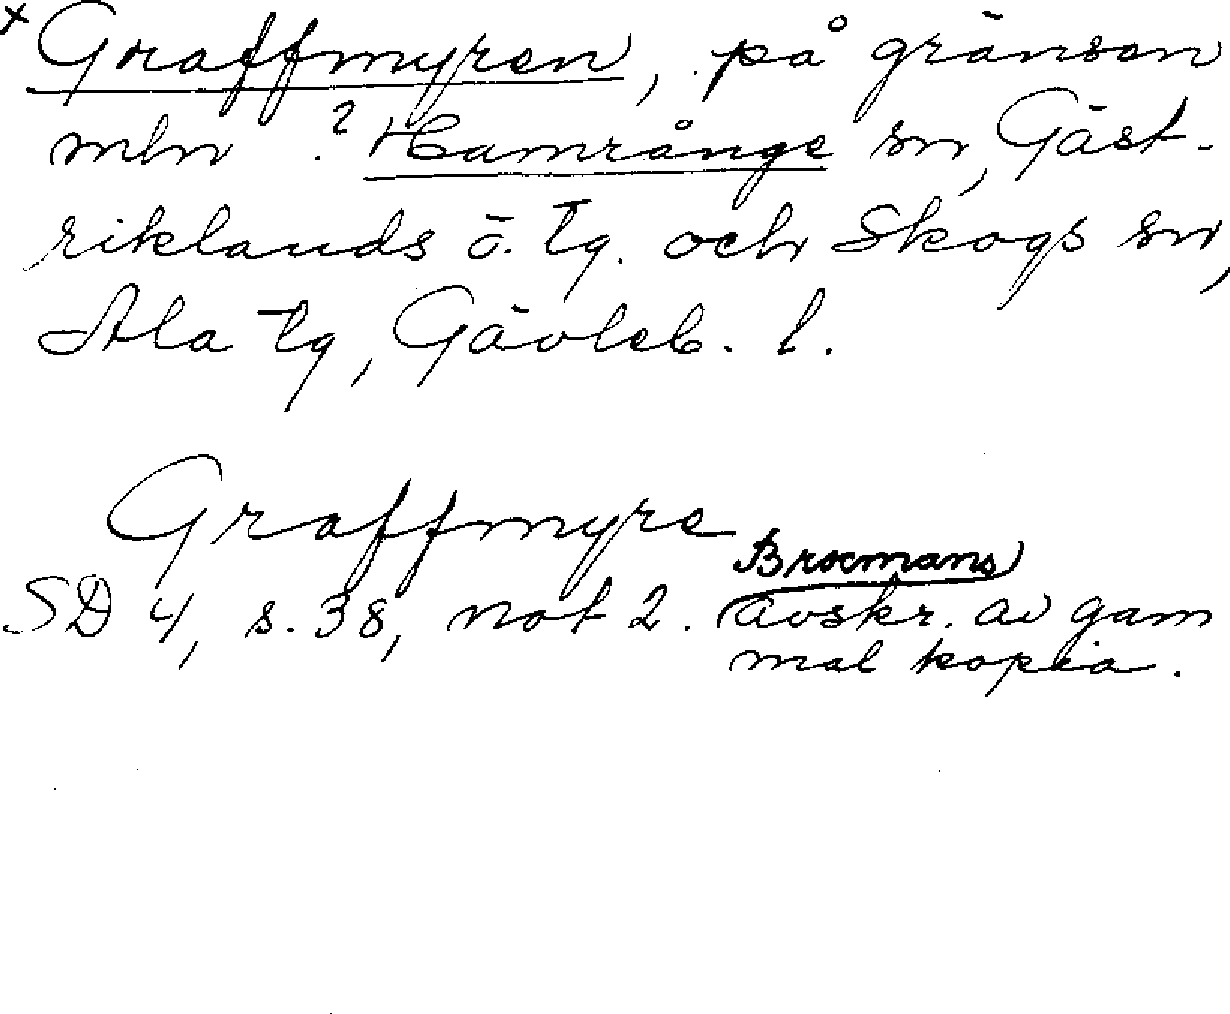 × Graffmyren, på gränsen
mln ? Hamrånge sn, Gäst-
riklands ö. tg. och Skogs sn,
Ala tg, Gävleb. l.
Graffmyre
Brocmans
SD 4, s. 38, not 2. (avskr. av gam
mal kopia.